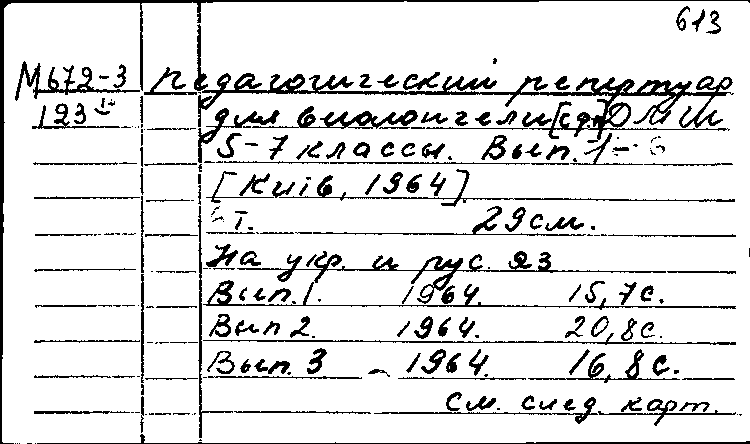 613
М672-3 Педагогический репертуар
123 для виолончели [ ] ДМШ
5-7 классы. Вып. 1-6
[Київ, 1964]
6 т. 29 см.
На укр. и рус яз
Вып. 1. 1964. 15,7 с.
Вып 2. 1964. 20,8 с.
Вып. 3 - 1964. 16,8 с.
См. след. карт.